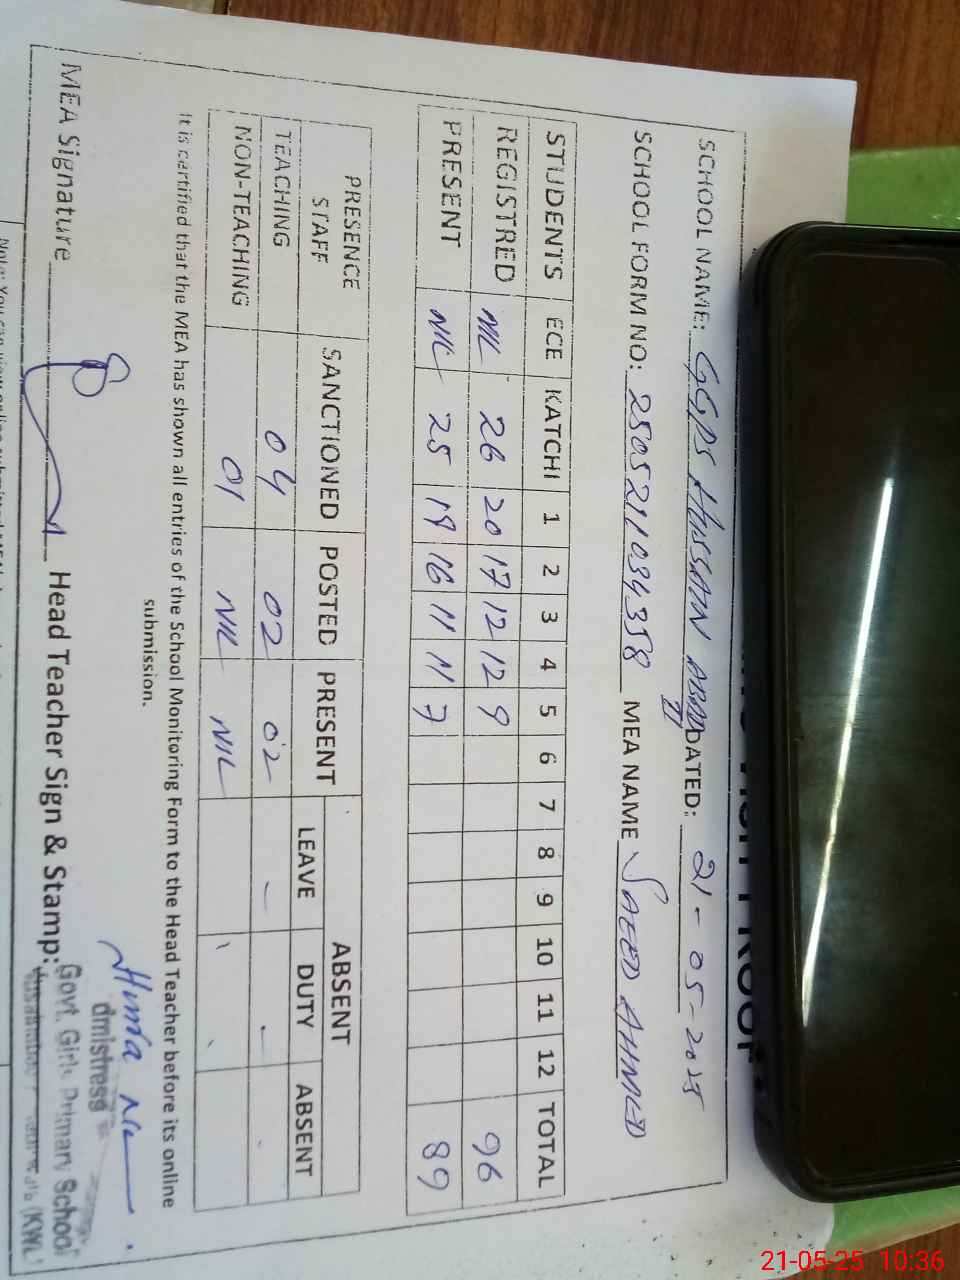 SCHOOL NAME: GGPS HUSSAIN ABAD II DATED: 21-05-2025
SCHOOL FORM NO: 250521034358 MEA NAME SAEED AHMED
STUDENTS ECE KATCHI 1 2 3 4 5 6 7 8 9 10 11 12 TOTAL
REGISTRED NIL 26 20 17 12 12 9 96
PRESENT NIL 25 19 16 11 11 7 89
PRESENCE STAFF SANCTIONED POSTED PRESENT ABSENT
LEAVE DUTY ABSENT
TEACHING 04 02 02 - -
NON-TEACHING 01 NIL NIL
It is certified that the MEA has shown all entries of the School Monitoring Form to the Head Teacher before its online
submission.
MEA Signature Head Teacher Sign & Stamp:
dmistress
Govt. Girls Primary School
(KWL)
21-05-25 10:36